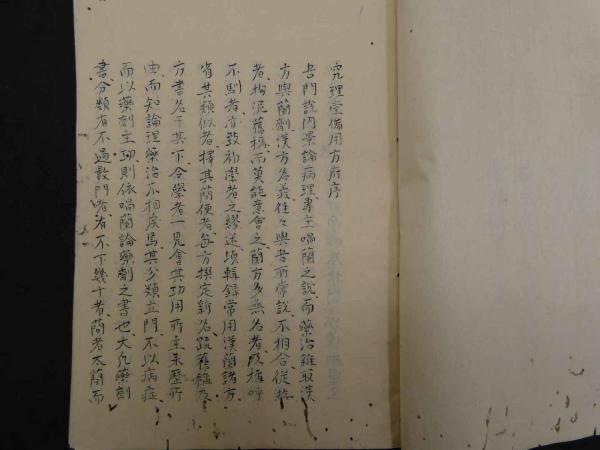 究理堂備用方府序
吾門説内景論病理專主喎蘭之説而藥治雖取漢
方與蘭劑漢方名義往々與吾所常説不相合從游
者拘泥舊稱而莫能意會之蘭方多無名者及稱呼
不馴者亦致初學者之繆迷頃輯録常用漢蘭諸方
省其類似者擇其簡便者每方撰定新名疏舊稱及
方書名于其下令學者一見會其功用所主來歷所
由而知論理藥治不相戾焉其分類立門不以病症
而以藥劑主功則依喎蘭論藥劑之書也大凡藥劑
書分類有不過數門者有不下幾十者簡者太簡而